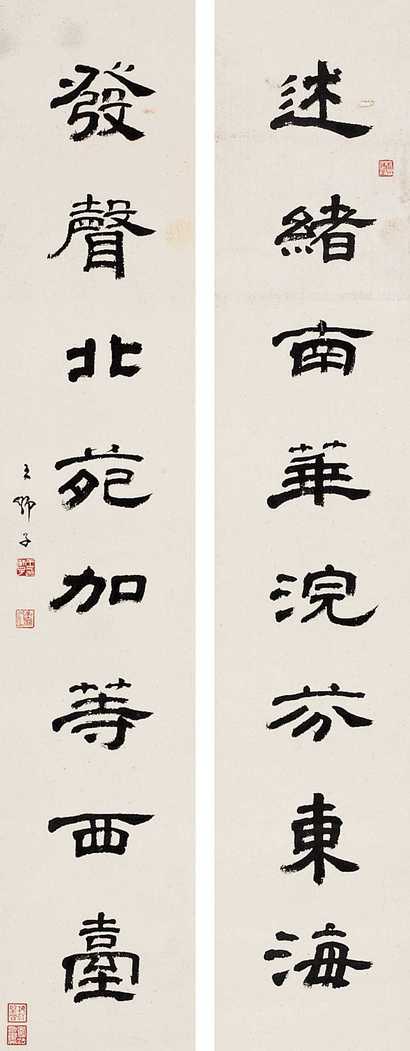 述緒南華浣芬東海
發聲北苑加等西臺
王師子